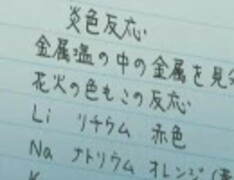 炎色反応
金属塩の中の金属を見
花火の色もこの反応
Li リチウム 赤色
Na ナトリウム オレンジ(
K